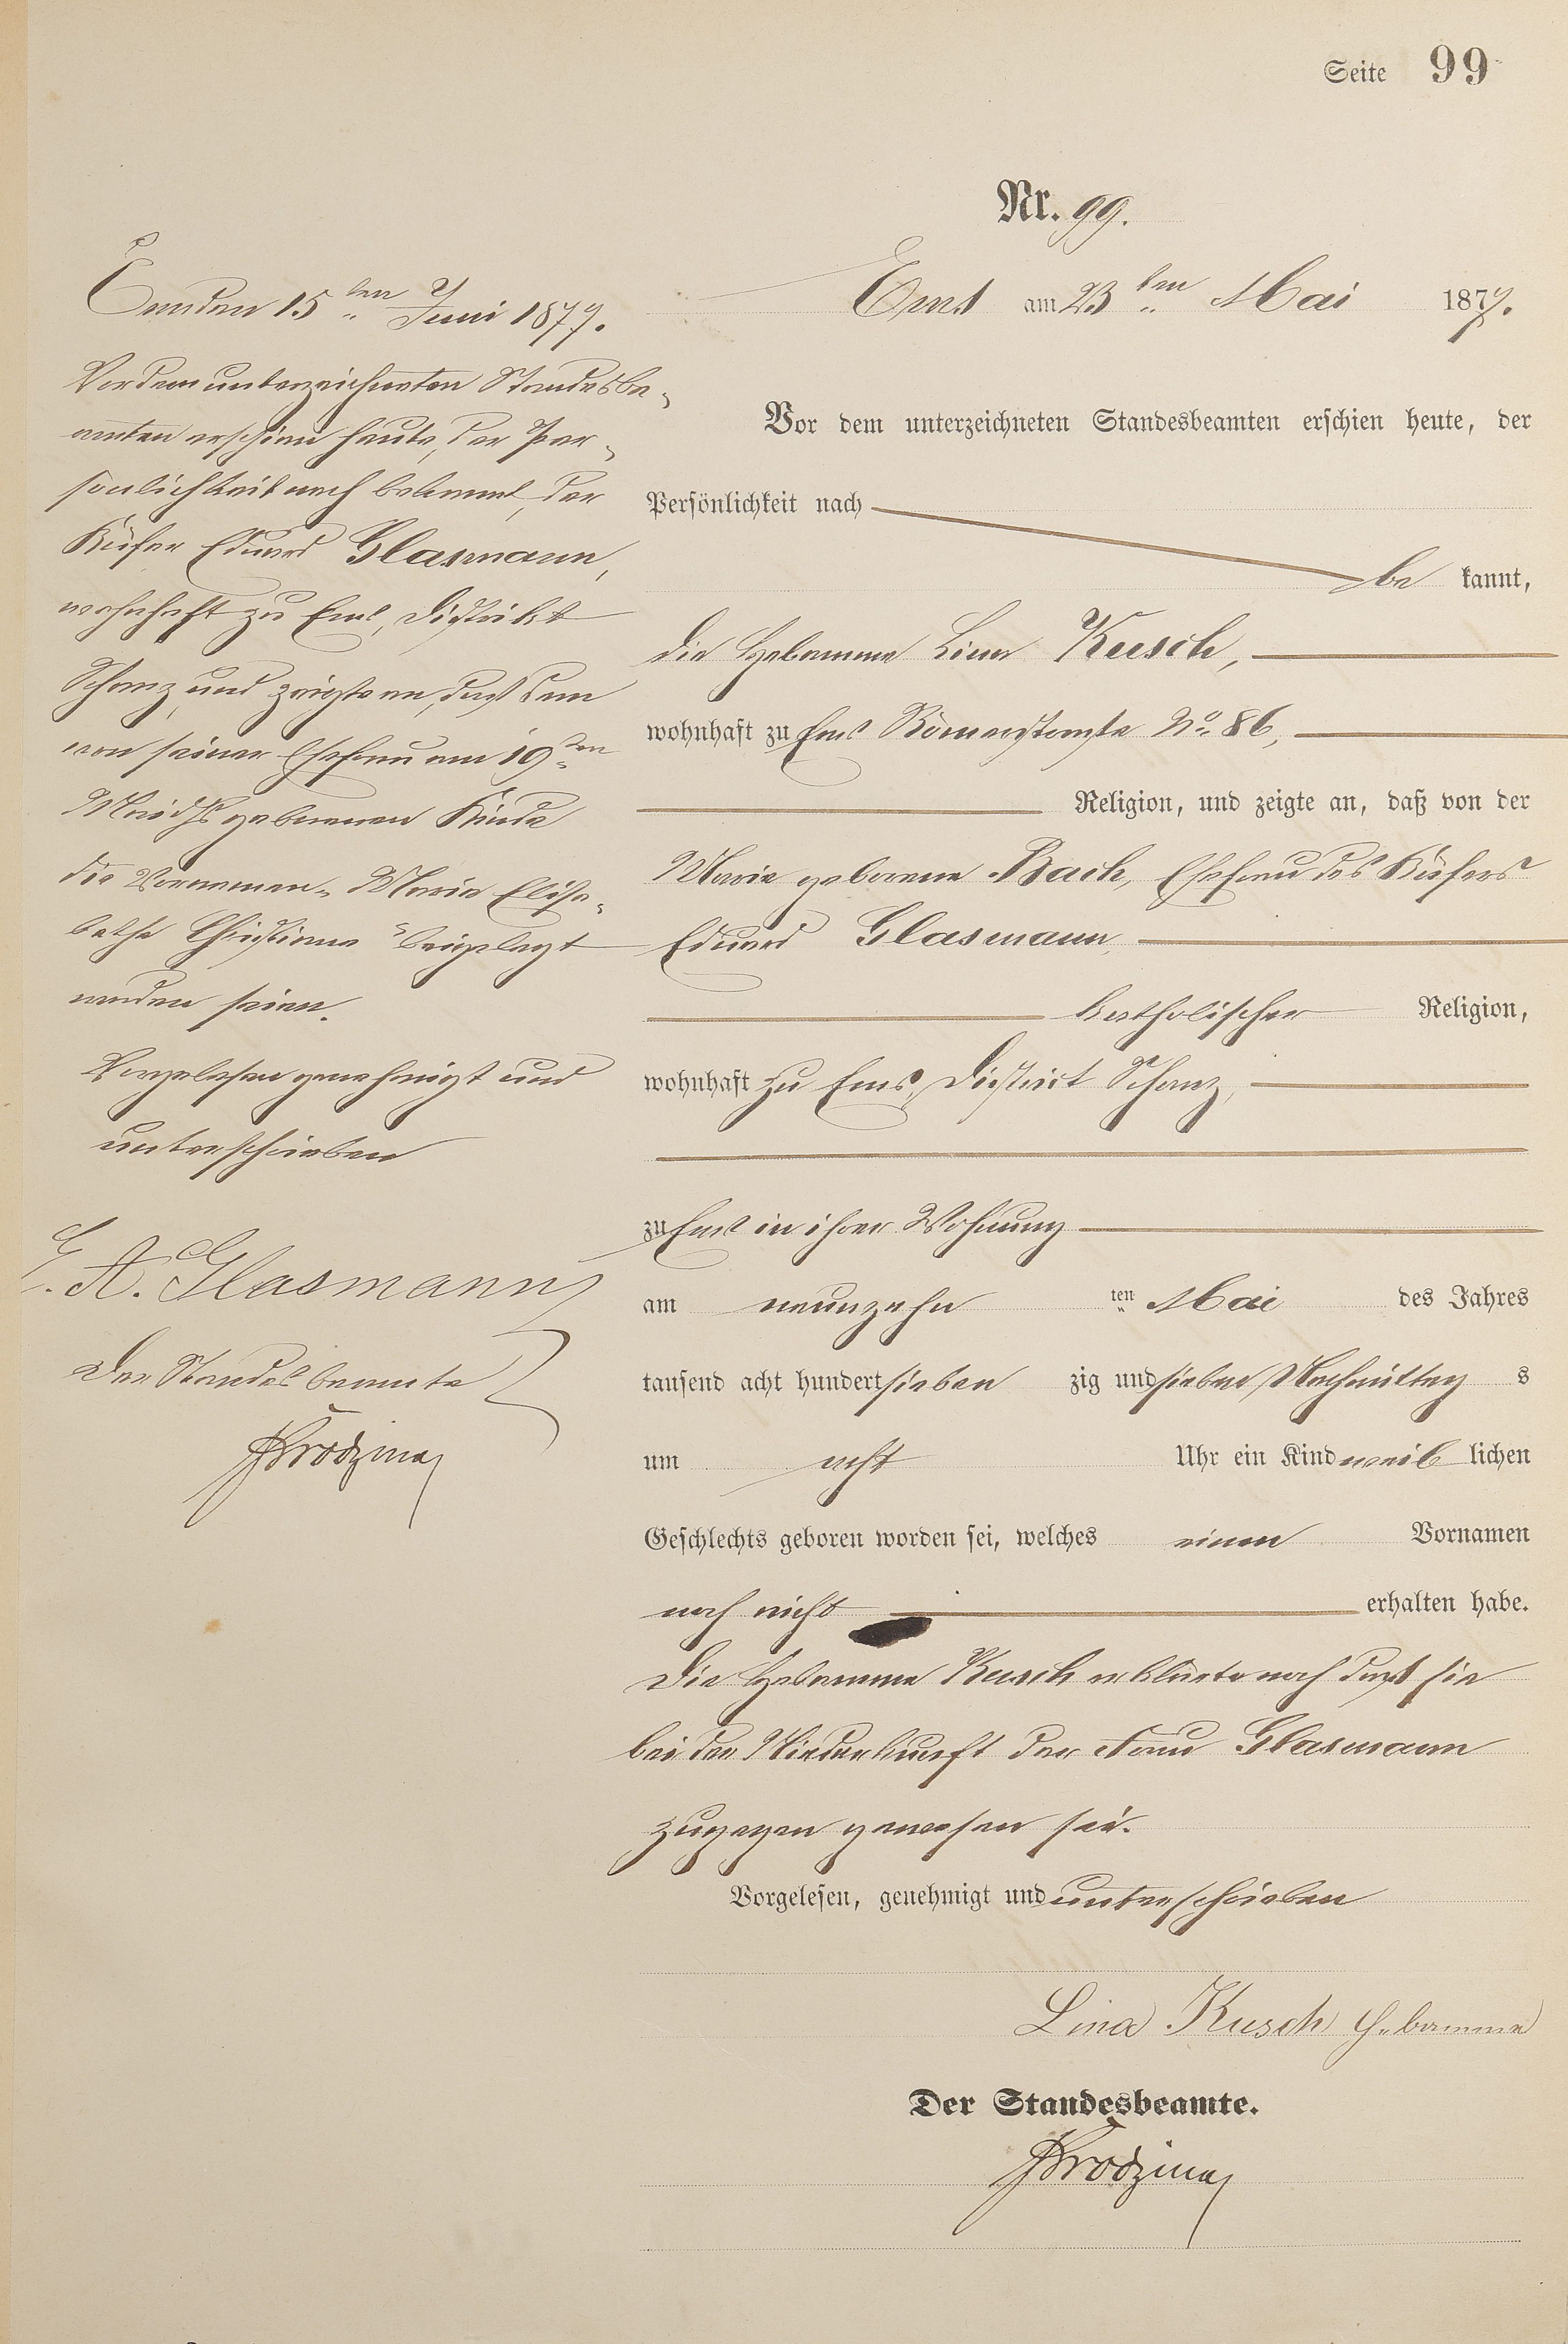 Seite 99
Nr. 99.
Ems am 23ten Mai 1877.
Vor dem unterzeichneten Standesbeamten erschien heute, der
Persönlichkeit nach
be kannt,
die Hebamme Lina Kusch,
wohnhaft zu Ems Römerstraße No. 86,
Religion, und zeigte an, daß von der
Marie geborene Bach, Ehefrau des Küfers
Eduard Glasmann,
katholischer Religion,
wohnhaft zu Ems, District Schanz,
zu Ems in ihrer Wohnung
am neunzehn ten Mai des Jahres
tausend acht hundert sieben zig und sieben Nachmittag s
um acht Uhr ein Kind weib lichen
Geschlechts geboren worden sei, welches einen Vornamen
noch nicht erhalten habe.
Die Hebamme Kusch erklärte noch daß sie
bei der Niederkunft der Frau Glasmann
zugegen gewesen sei.
Vorgelesen, genehmigt und unterschrieben
Lina Kusch Hebamme
Der Standesbeamte.
15ten Juni 1877.
Vor dem unterzeichneten Standesbe-
amten erschien heute, der Per-
sönlichkeit nach bekannt, der
Küfer Eduard Glasmann,
wohnhaft zu Ems, Distrikt
Schanz, und zeigte an, daß dem
von seiner Ehefrau am 19ten
Mai d. Js. geborenen Kinde
die Vornamen „Maria Elisa-
betha Christiana“ beigelegt
worden seien.
Vorgelesen genehmigt und
unterschrieben
E. A. Glasmann
Der Standesbeamte